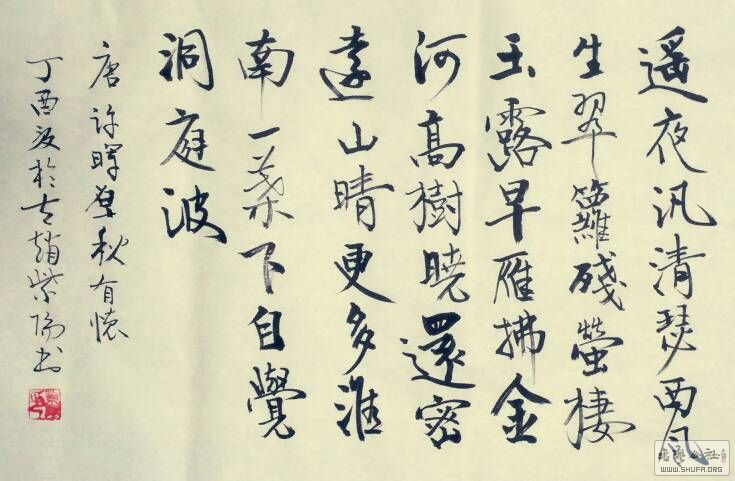 遥夜汎清瑟西風
生翠籮殘螢棲
玉露早雁拂金
河髙樹曉還密
遠山晴更多淮
南一葉下自覺
洞庭波
唐许暉秋有懷
丁酉夏於古趙紫陽书
書藝公社
WWW.SHUFA.ORG